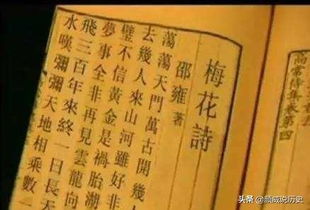 高常侍集卷第四
梅花詩
邵雍著
蕩蕩天門萬古開幾人
去幾人來山河雖好非
璧不信黃金是禍胎湖
夢事全非再見雲龍向
飛三百年來終一日長天
水嘆瀰瀰天地相乘數一
头条 @威说历史